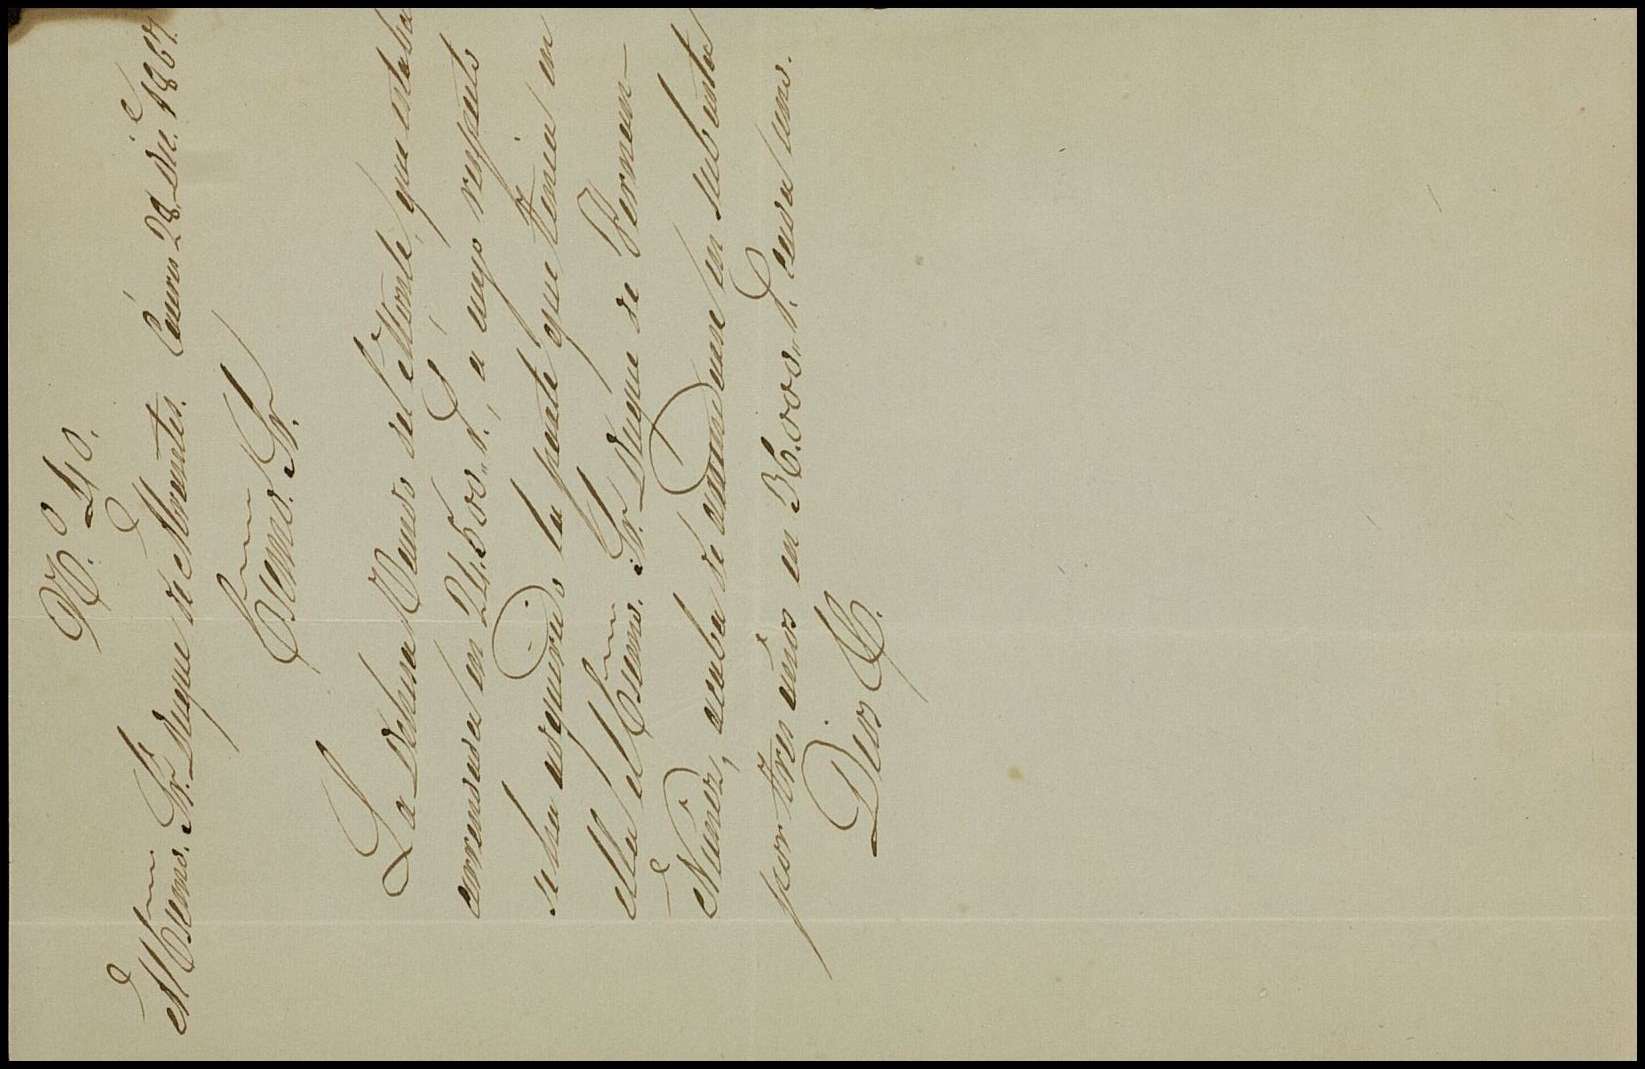 N.º 40.
Al Excmo. Sr. Duque de Abrantes. Cáceres 28 Dic.e 1867.
Excmo. Sr.
La dehesa del Monte, que estaba
arrendada en 24.500 r.s, a cuyo respecto
se ha adquirido la parte que tenia en
ella el Excmo. Sr. Duque de Fernan-
Nuñez, acaba de arrendarse en subasta
por tres años en 36.000 r.s cada uno.
Dios &.